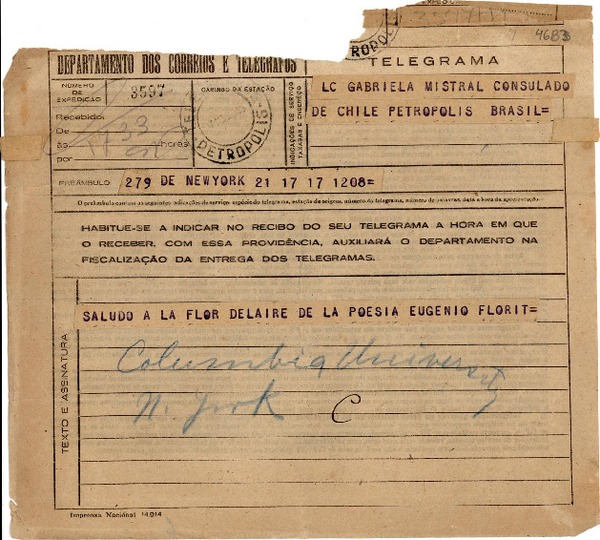 4683
DEPARTAMENTO DOS CORREIOS E TELEGRAFOS
TELEGRAMA
NÚMERO DE EXPEDIÇÃO
3597
CARIMBO DA ESTAÇÃO
PETROPOLIS
INDICAÇÕES DE SERVIÇO TAXADAS E ENDEREÇO
LC GABRIELA MISTRAL CONSULADO
DE CHILE PETROPOLIS BRASIL=
Recebido:
De
às horas
por
PREÂMBULO 279 DE NEWYORK 21 17 17 1208=
O preâmbulo contém as seguintes indicações de serviço: espécie do telegrama, estação de origem, número do telegrama, número de palavras, data e hora da apresentação.
HABITUE-SE A INDICAR NO RECIBO DO SEU TELEGRAMA A HORA EM QUE
O RECEBER. COM ESSA PROVIDÊNCIA, AUXILIARÁ O DEPARTAMENTO NA
FISCALIZAÇÃO DA ENTREGA DOS TELEGRAMAS.
TEXTO E ASSINATURA
SALUDO A LA FLOR DELAIRE DE LA POESIA EUGENIO FLORIT=
Columbia University
N. York C
Imprensa Nacional 14.914